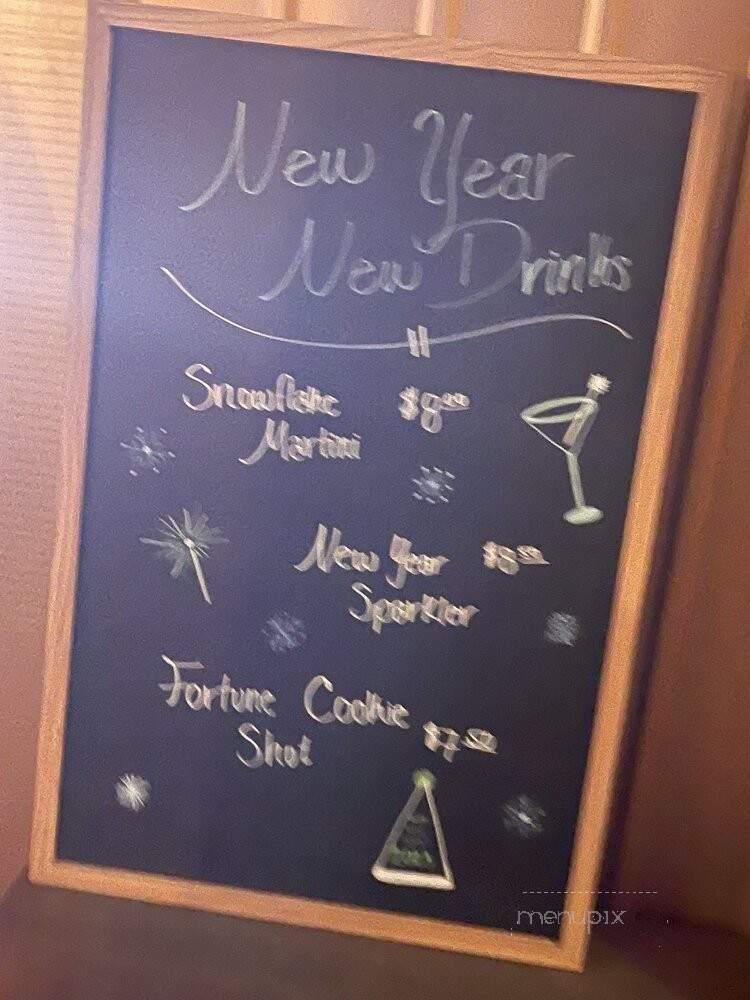 New Year
New Drinks
Snowflake $8.00
Martini
New Year
Sparkler
Fortune Cookie $7.50
Shot
menupix